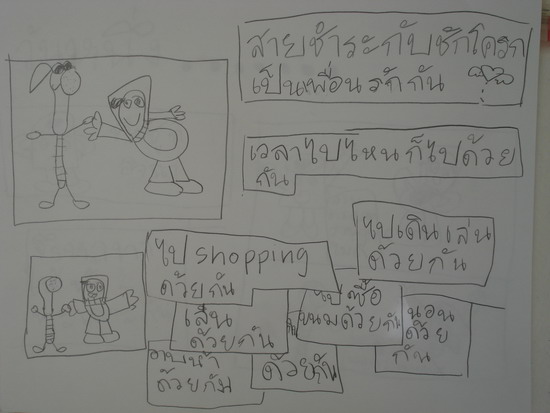 สายชำระกับชักโครก
เป็นเพื่อนรักกัน
เวลาไปไหนก็ไปด้วย
กัน
ไปเดินเล่น
ด้วยกัน
ไป shopping
ด้วยกัน
ไปซื้อ
ขนมด้วยกัน
เล่น
ด้วยกัน
นอน
ด้วย
กัน
อาบน้ำ
ด้วยกัน
ด้วยกัน